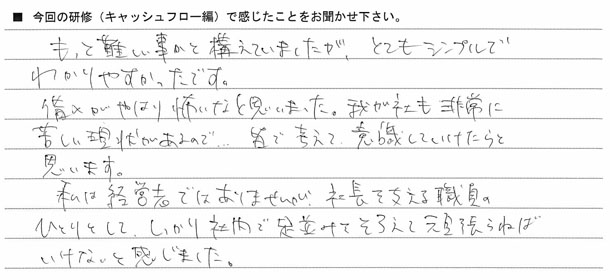 ■ 今回の研修（キャッシュフロー編）で感じたことをお聞かせ下さい。
もっと難しい事かと構えていましたが、とてもシンプルで
わかりやすかったです。
備えがやはり怖いなと思いました。我が社も非常に
苦しい現状があるので… 皆で考えて、意識していけたらと
思います。
私は経営者ではありませんが、社長を支える職員の
ひとりとして、しっかり社内で足並みをそろえて頑張らねば
いけないと感じました。